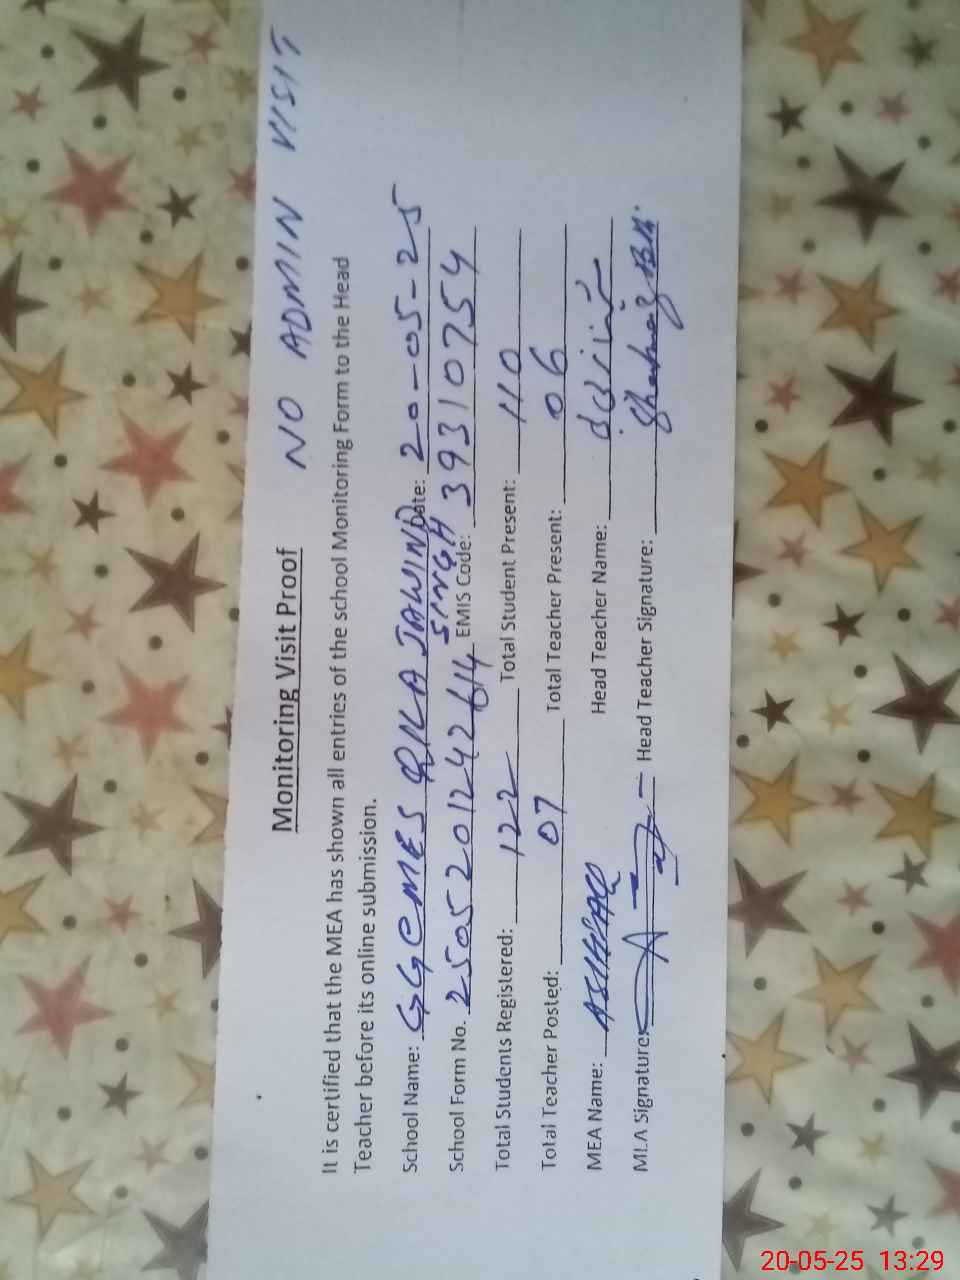 NO ADMIN VISIT
Monitoring Visit Proof
It is certified that the MEA has shown all entries of the school Monitoring Form to the Head
Teacher before its online submission.
School Name: GGCMES QILA JAWIND SINGH Date: 20-05-25
School Form No. 2505201242614 EMIS Code: 39310754
Total Students Registered: 122 Total Student Present: 110
Total Teacher Posted: 07 Total Teacher Present: 06
MEA Name: ASHFAQ Head Teacher Name:
MEA Signature: Head Teacher Signature:
20-05-25 13:29